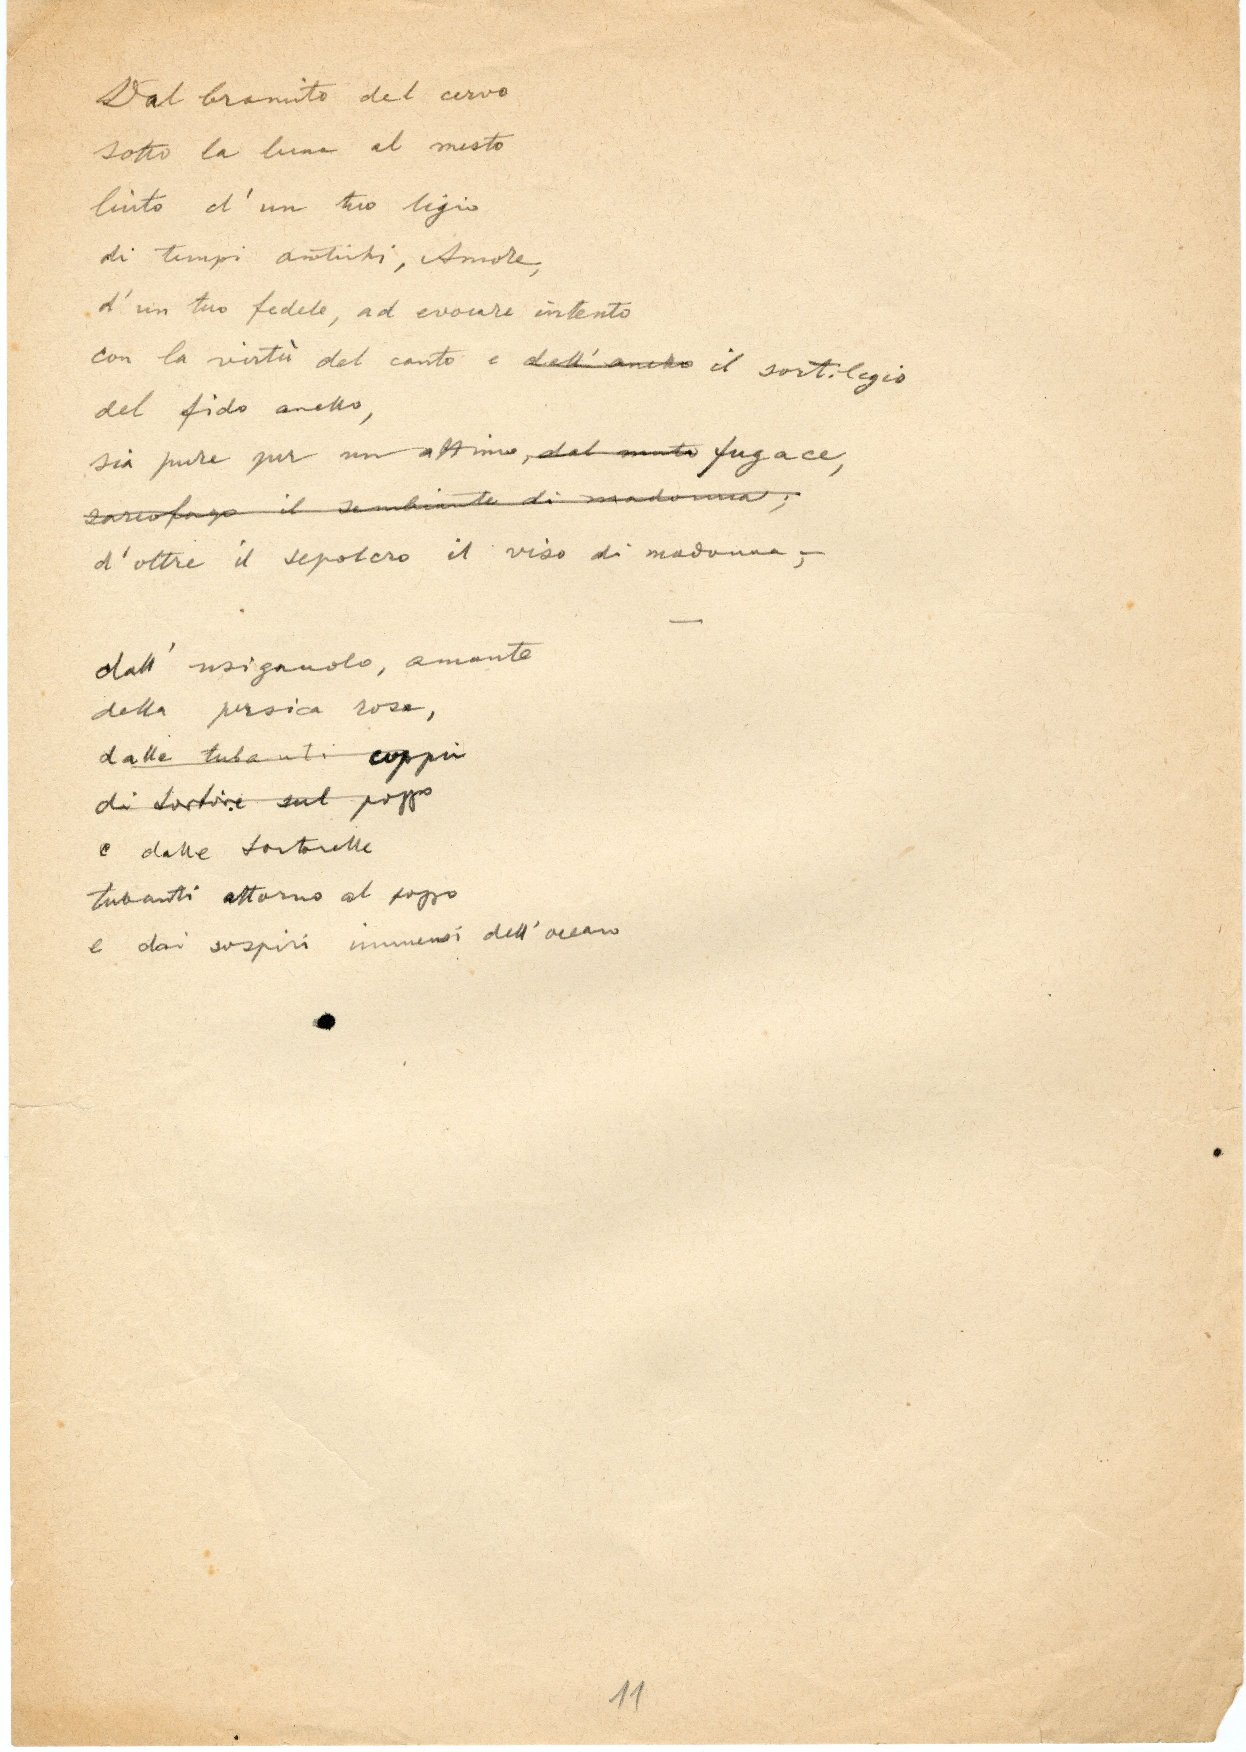 Dal bramito del cervo
sotto la luna al mesto
liuto d'un tuo ligio
di tempi antichi, Amore,
d'un tuo fedele, ad evocare intento
con la virtù del canto e dell'anello il sortilegio
del fido anello,
sia pure per un attimo, dal muto fugace,
sarcofago il sembiante di madonna;
d'oltre il sepolcro il viso di madonna; –
—
dall'usignuolo, amante
della persica rosa,
dalle tubanti coppie
di tortore sul pozzo
e dalle tortorelle
tubanti attorno al pozzo
e dai sospiri immensi dell'oceano
11